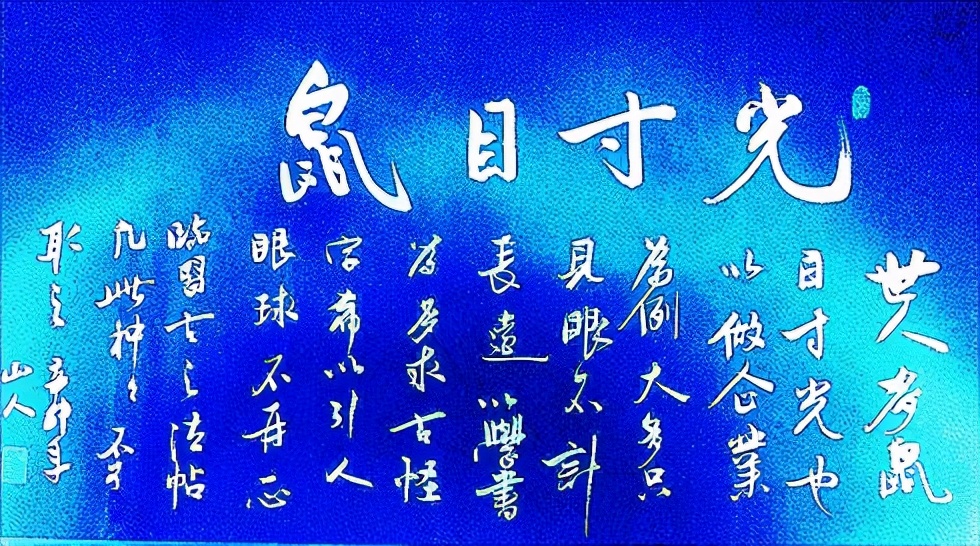 鼠目寸光
世人多鼠
目寸光也
以做企業
為例大多只
見眼不計
長遠以學書
為多求古怪
字希以引人
眼球不再正
臨習古之法帖
凡此种々不
取之辛卯年
山人